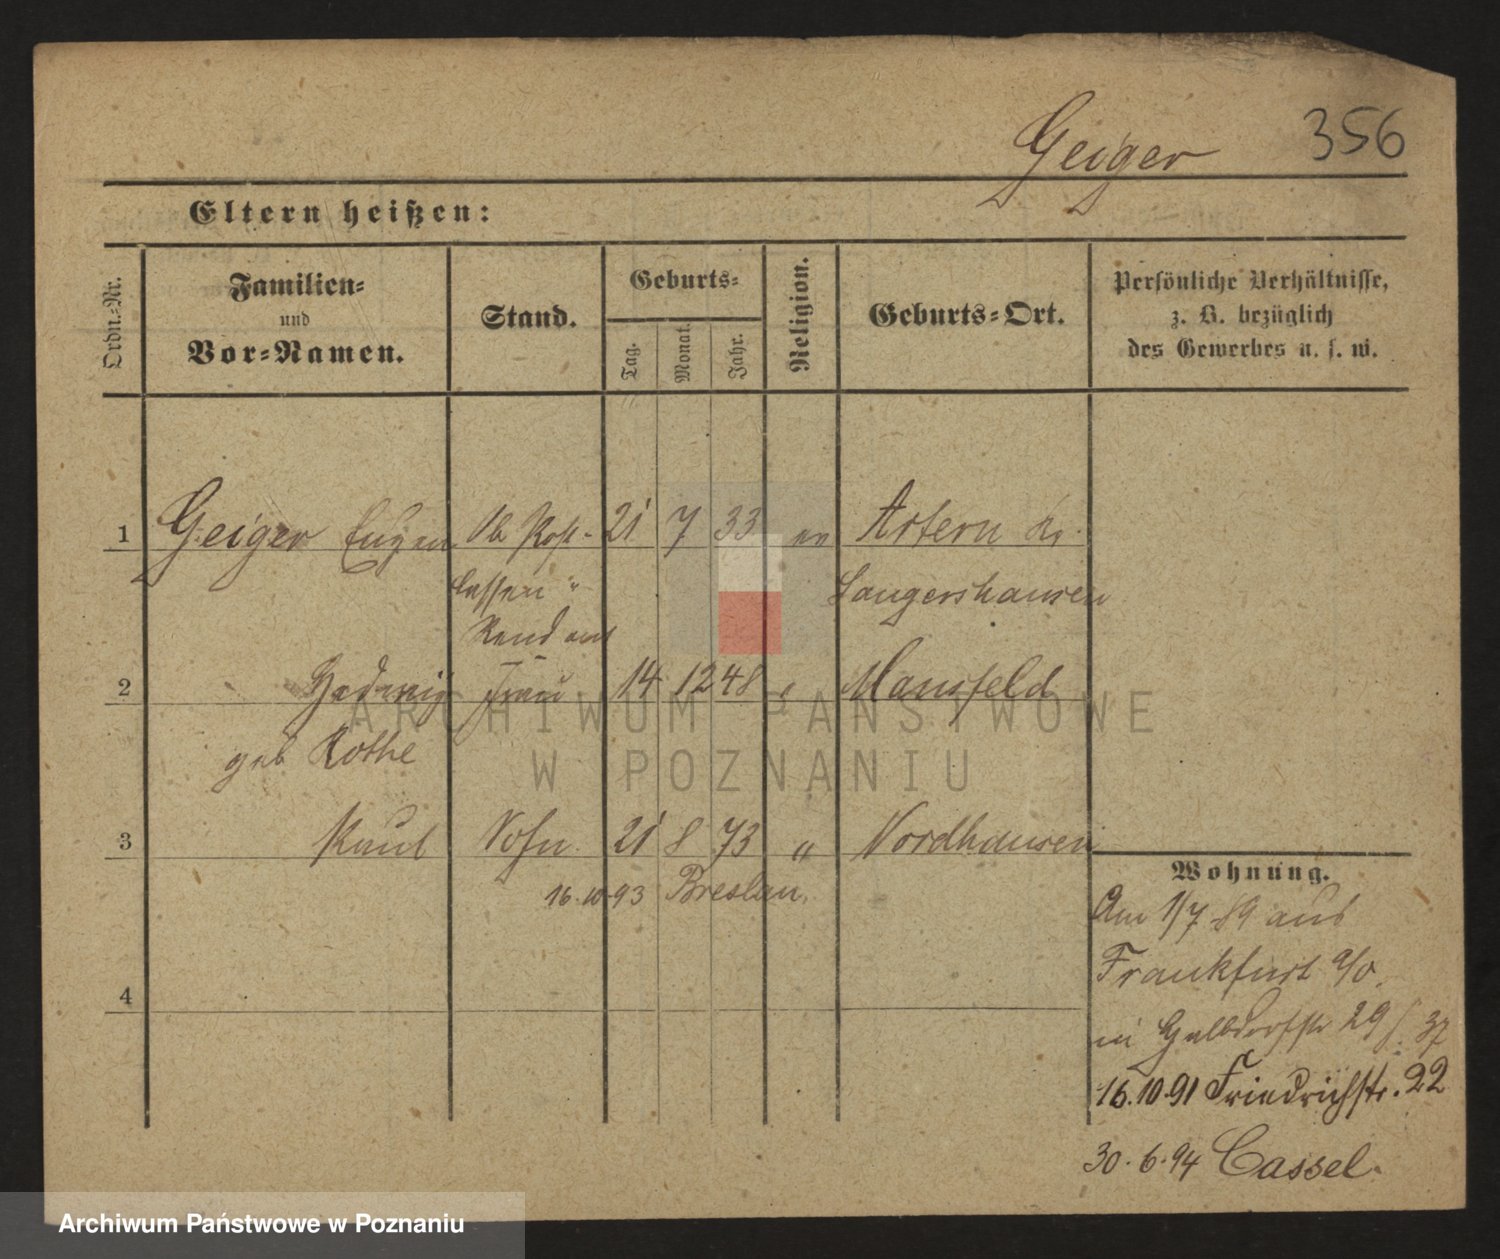 Geiger 356
Eltern heißen:
Ordn.-Nr.
Familien-
und
Vor-Namen.
Stand.
Geburts-
Tag.
Monat.
Jahr.
Religion.
Geburts-Ort.
Persönliche Verhältnisse,
z. B. bezüglich
des Gewerbes u. s. w.
1 Geiger Eugen Ob Post- 21 7 33 ev Artern Kr.
Cassen Sangershausen
Rendant
2 Hedwig Frau 14 12 48 " Mansfeld
geb Rothe
3 Paul Sohn 21 8 73 " Nordhausen
16.10.93 Breslau.
4
Wohnung.
Am 1/7 89 aus
Frankfurt a/o.
in Halbdorfstr 29
16.10.91 Friedrichstr. 22
30.6.94 Cassel.
ARCHIWUM PAŃSTWOWE
W POZNANIU
Archiwum Państwowe w Poznaniu